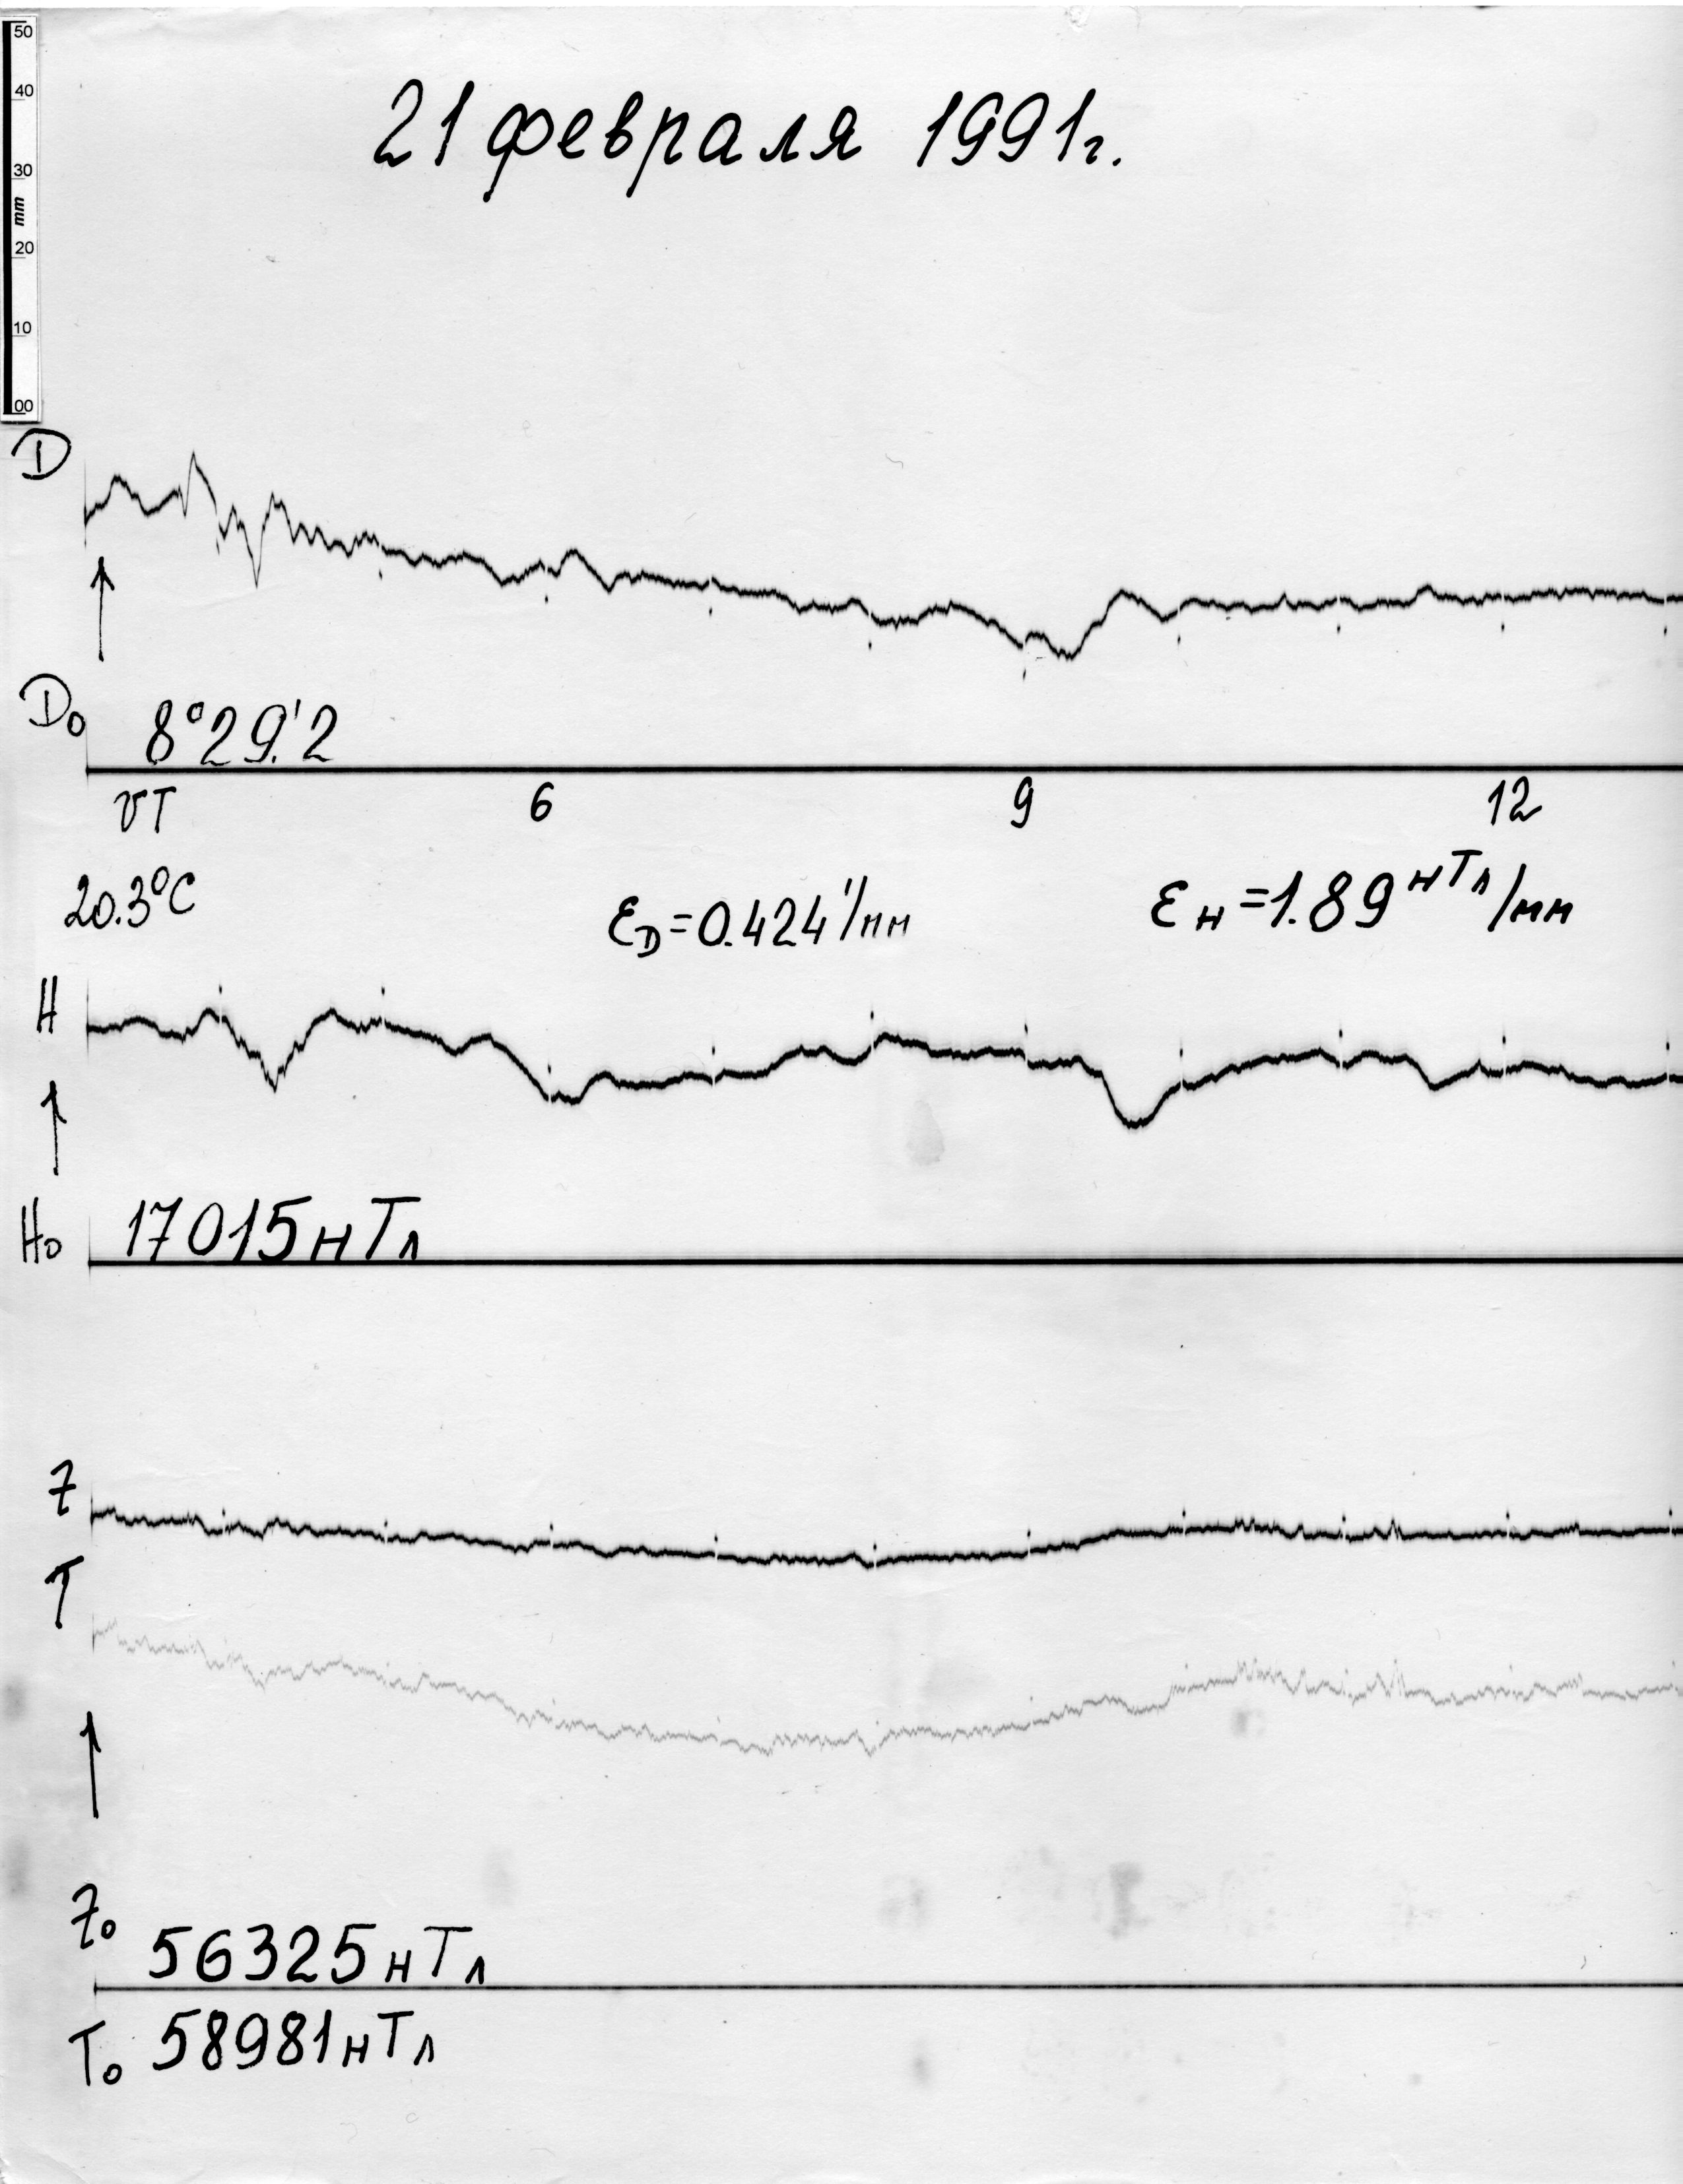 50
40
30
mm
20
10
00
21 февраля 1991г.
D
D₀ 8°29.'2
UT 6 9 12
20.3°C
ε_D=0.424'/мм ε_H=1.89 нТл/мм
H
H₀ 17015нТл
Z
T
Z₀ 56325нТл
T₀ 58981нТл